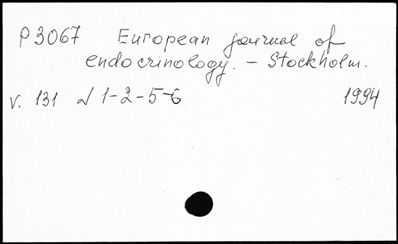 P3067 European journal of
endocrinology. - Stockholm.
v. 131 N 1-2-5-6 1994